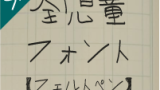 全児童
フォント
【フェルトペン】